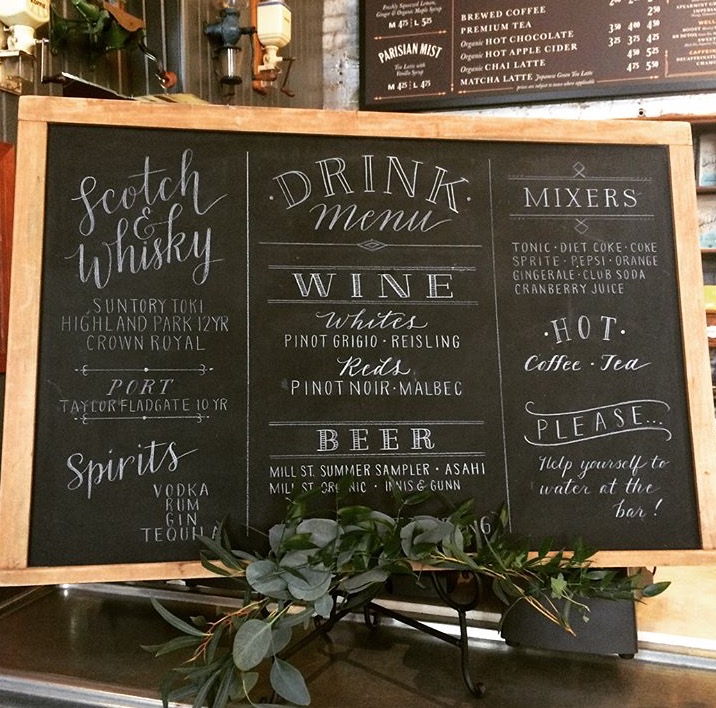 Freshly Squeezed Lemon,
Ginger & Organic Maple Syrup
M 4²⁵ | L 5²⁵
PARISIAN MIST
Tea Latte with
Vanilla Syrup
M 4²⁵ | L 4⁷⁵
BREWED COFFEE
PREMIUM TEA
Organic HOT CHOCOLATE 3⁵⁰ 4⁰⁰ 4⁵⁰
Organic HOT APPLE CIDER 3²⁵ 3⁷⁵ 4²⁵
Organic CHAI LATTE
MATCHA LATTE Japanese Green Tea Latte 4⁷⁵ 5⁵⁰
prices are subject to taxes where applicable
Scotch
&
Whisky
SUNTORY TOKI
HIGHLAND PARK 12YR
CROWN ROYAL
PORT
TAYLOR FLADGATE 10 YR
Spirits
VODKA
RUM
GIN
TEQUILA
·DRINK·
menu
WINE
Whites
PINOT GRIGIO · REISLING
Reds
PINOT NOIR · MALBEC
BEER
MILL ST. SUMMER SAMPLER · ASAHI
MILL ST. ORGANIC · INNIS & GUNN
MIXERS
TONIC · DIET COKE · COKE
SPRITE · PEPSI · ORANGE
GINGERALE · CLUB SODA
CRANBERRY JUICE
·HOT·
Coffee · Tea
PLEASE...
Help yourself to
water at the
bar!